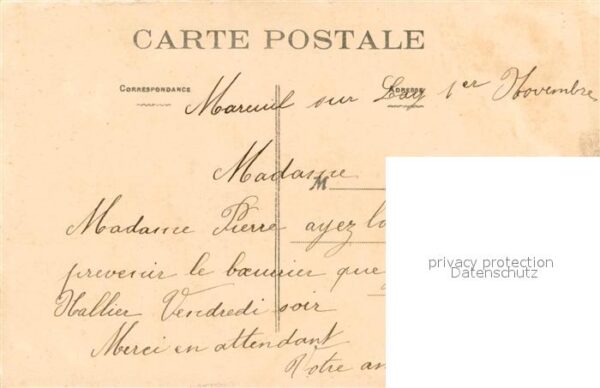 CARTE POSTALE
CORRESPONDANCE
ADRESSE
Mareuil sur Lay 1er Novembre
Madame
M
Madame Pierre ayez la
prevenir le que
Hallier Vendredi soir
Merci en attendant
Votre am
privacy protection
Datenschutz